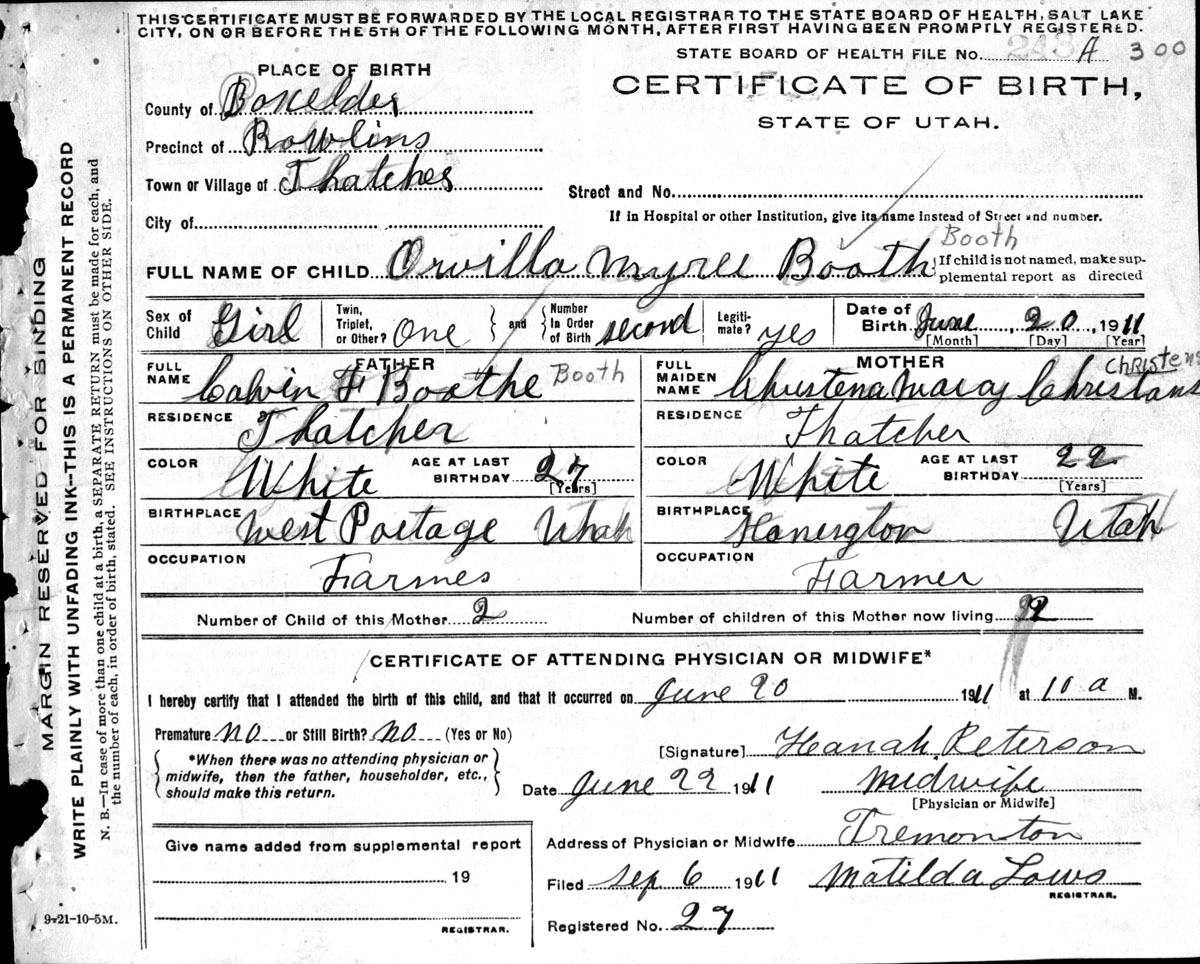 THIS CERTIFICATE MUST BE FORWARDED BY THE LOCAL REGISTRAR TO THE STATE BOARD OF HEALTH, SALT LAKE
CITY, ON OR BEFORE THE 5TH OF THE FOLLOWING MONTH, AFTER FIRST HAVING BEEN PROMPTLY REGISTERED.
STATE BOARD OF HEALTH FILE No. 243 A 300
PLACE OF BIRTH
CERTIFICATE OF BIRTH,
STATE OF UTAH.
County of Boxelder
Precinct of Rowlins
Town or Village of Thatcher
Street and No.
City of
If in Hospital or other Institution, give its name instead of Street and number.
Booth
FULL NAME OF CHILD Orvilla Myrll Booth
If child is not named, make sup-
plemental report as directed
Sex of Child Girl
Twin, Triplet, or Other? One
and
Number In Order of Birth second
Legiti-mate? yes
Date of Birth June, 20, 1911
[Month] [Day] [Year]
FATHER
FULL NAME Calvin F Boothe Booth
MOTHER
FULL MAIDEN NAME Christena Christens
RESIDENCE Thatcher
RESIDENCE Thatcher
COLOR White AGE AT LAST BIRTHDAY 27 [Years]
COLOR White AGE AT LAST BIRTHDAY 22 [Years]
BIRTHPLACE West Portage Utah
BIRTHPLACE Utah
OCCUPATION Farmer
OCCUPATION Farmer
Number of Child of this Mother 2
Number of children of this Mother now living 2
CERTIFICATE OF ATTENDING PHYSICIAN OR MIDWIFE*
I hereby certify that I attended the birth of this child, and that it occurred on June 20 1911 at 10 a M.
Premature no or Still Birth? no (Yes or No)
*When there was no attending physician or
midwife, then the father, householder, etc.,
should make this return.
[Signature] Hanah Peterson
Date June 22 1911 Midwife
[Physician or Midwife]
Address of Physician or Midwife Tremonton
Give name added from supplemental report
19
REGISTRAR.
Filed Sep 6 1911 Matilda Laws
REGISTRAR.
Registered No. 27
9-21-10-5M.
MARGIN RESERVED FOR BINDING
WRITE PLAINLY WITH UNFADING INK—THIS IS A PERMANENT RECORD
N. B.—In case of more than one child at a birth, a SEPARATE RETURN must be made for each, and
the number of each, in order of birth, stated. SEE INSTRUCTIONS ON OTHER SIDE.